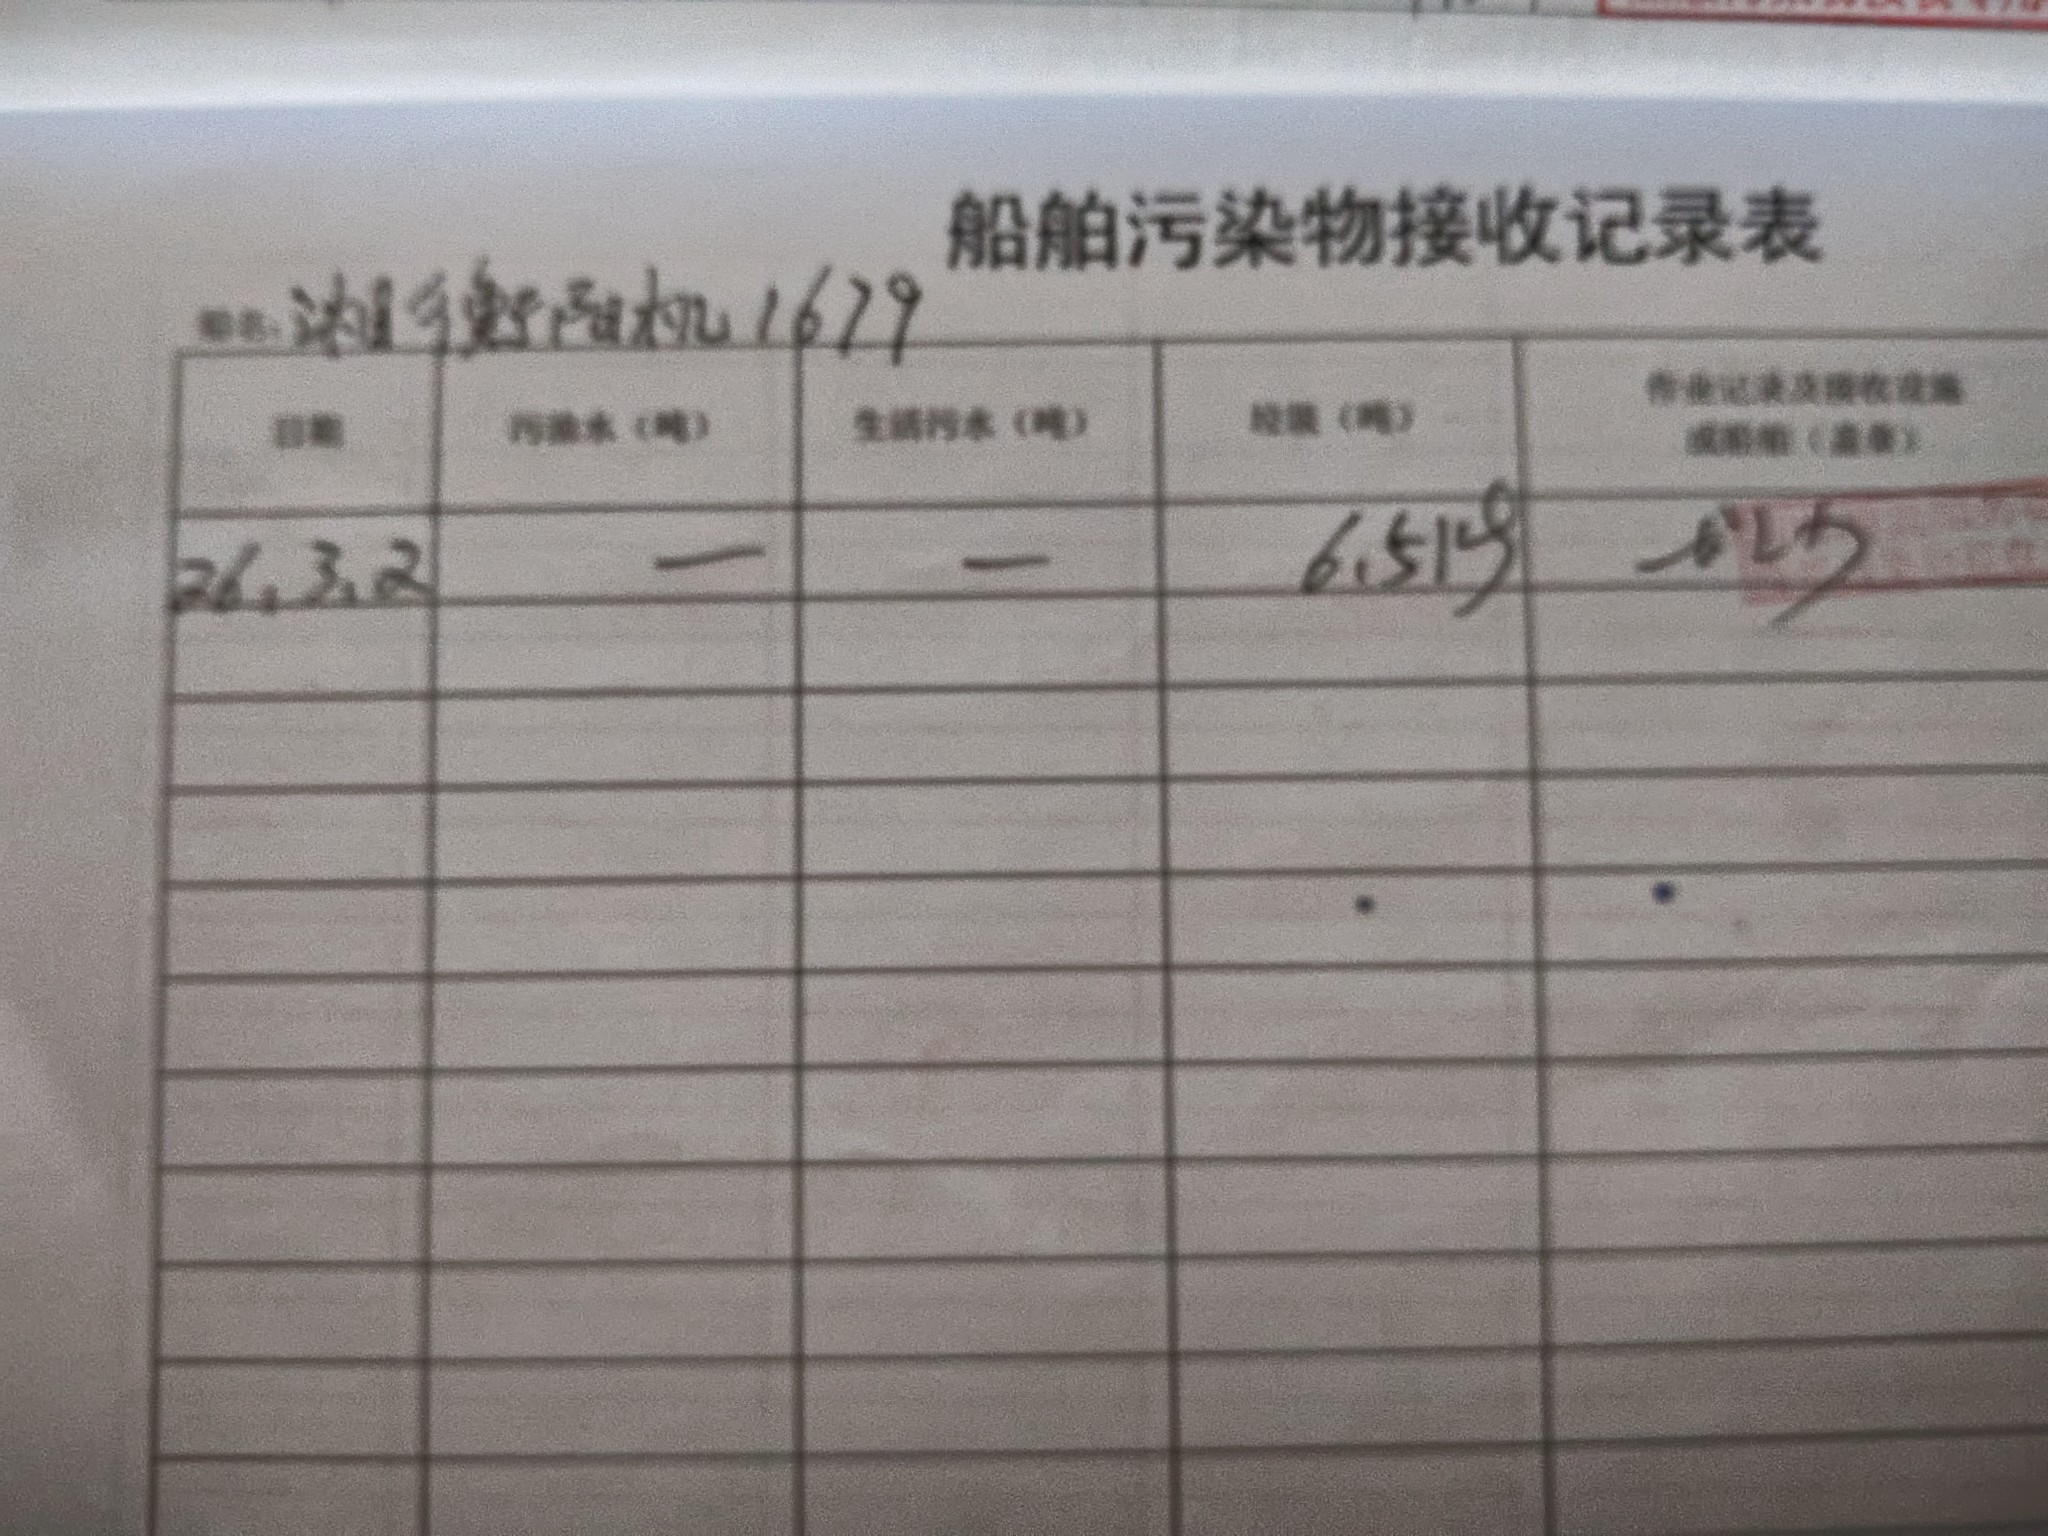 船舶污染物接收记录表
船名: 湘衡阳机1679
日期 污油水（吨） 生活污水（吨） 垃圾（吨） 作业记录及接收设施
或船舶（盖章）
26.3.2 — —